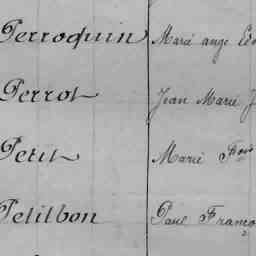 Perroquin Marie ange
Perrot Jean Marie J
Petit Marie Fois
Petitbon Paul Franço